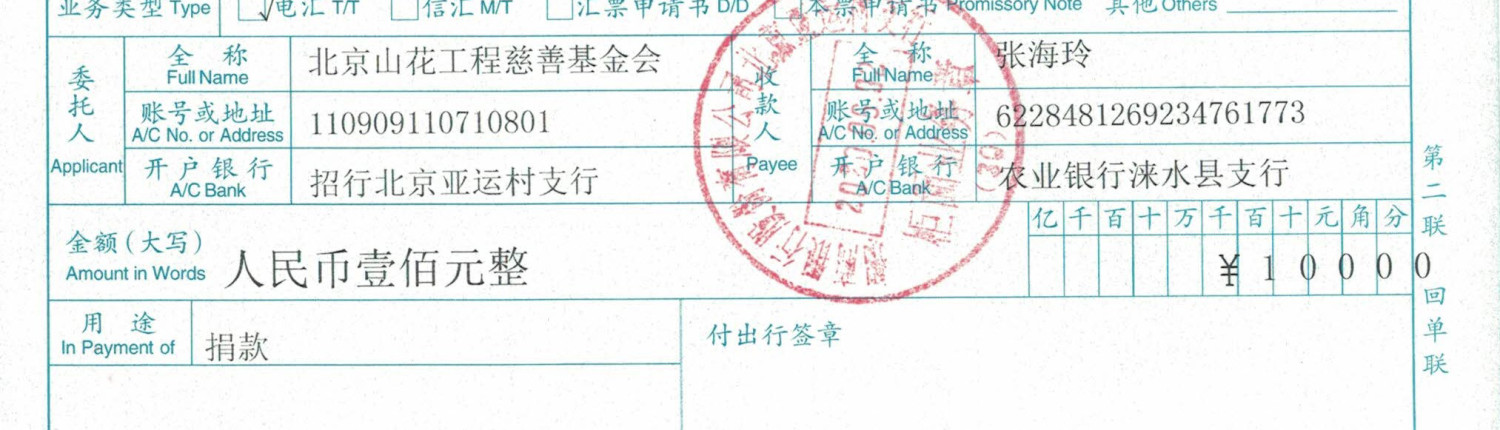 业务类型 Type 电汇 T/T 信汇 M/T 汇票申请书 D/D 本票申请书 Promissory Note 其他 Others
委托人 Applicant
全称 Full Name 北京山花工程慈善基金会
账号或地址 A/C No. or Address 110909110710801
开户银行 A/C Bank 招行北京亚运村支行
收款人 Payee
全称 Full Name 张海玲
账号或地址 A/C No. or Address 6228481269234761773
开户银行 A/C Bank 农业银行涞水县支行
金额(大写) Amount in Words 人民币壹佰元整
亿千百十万千百十元角分
¥10000
用途 In Payment of 捐款
付出行签章
第二联 回单联
(02)